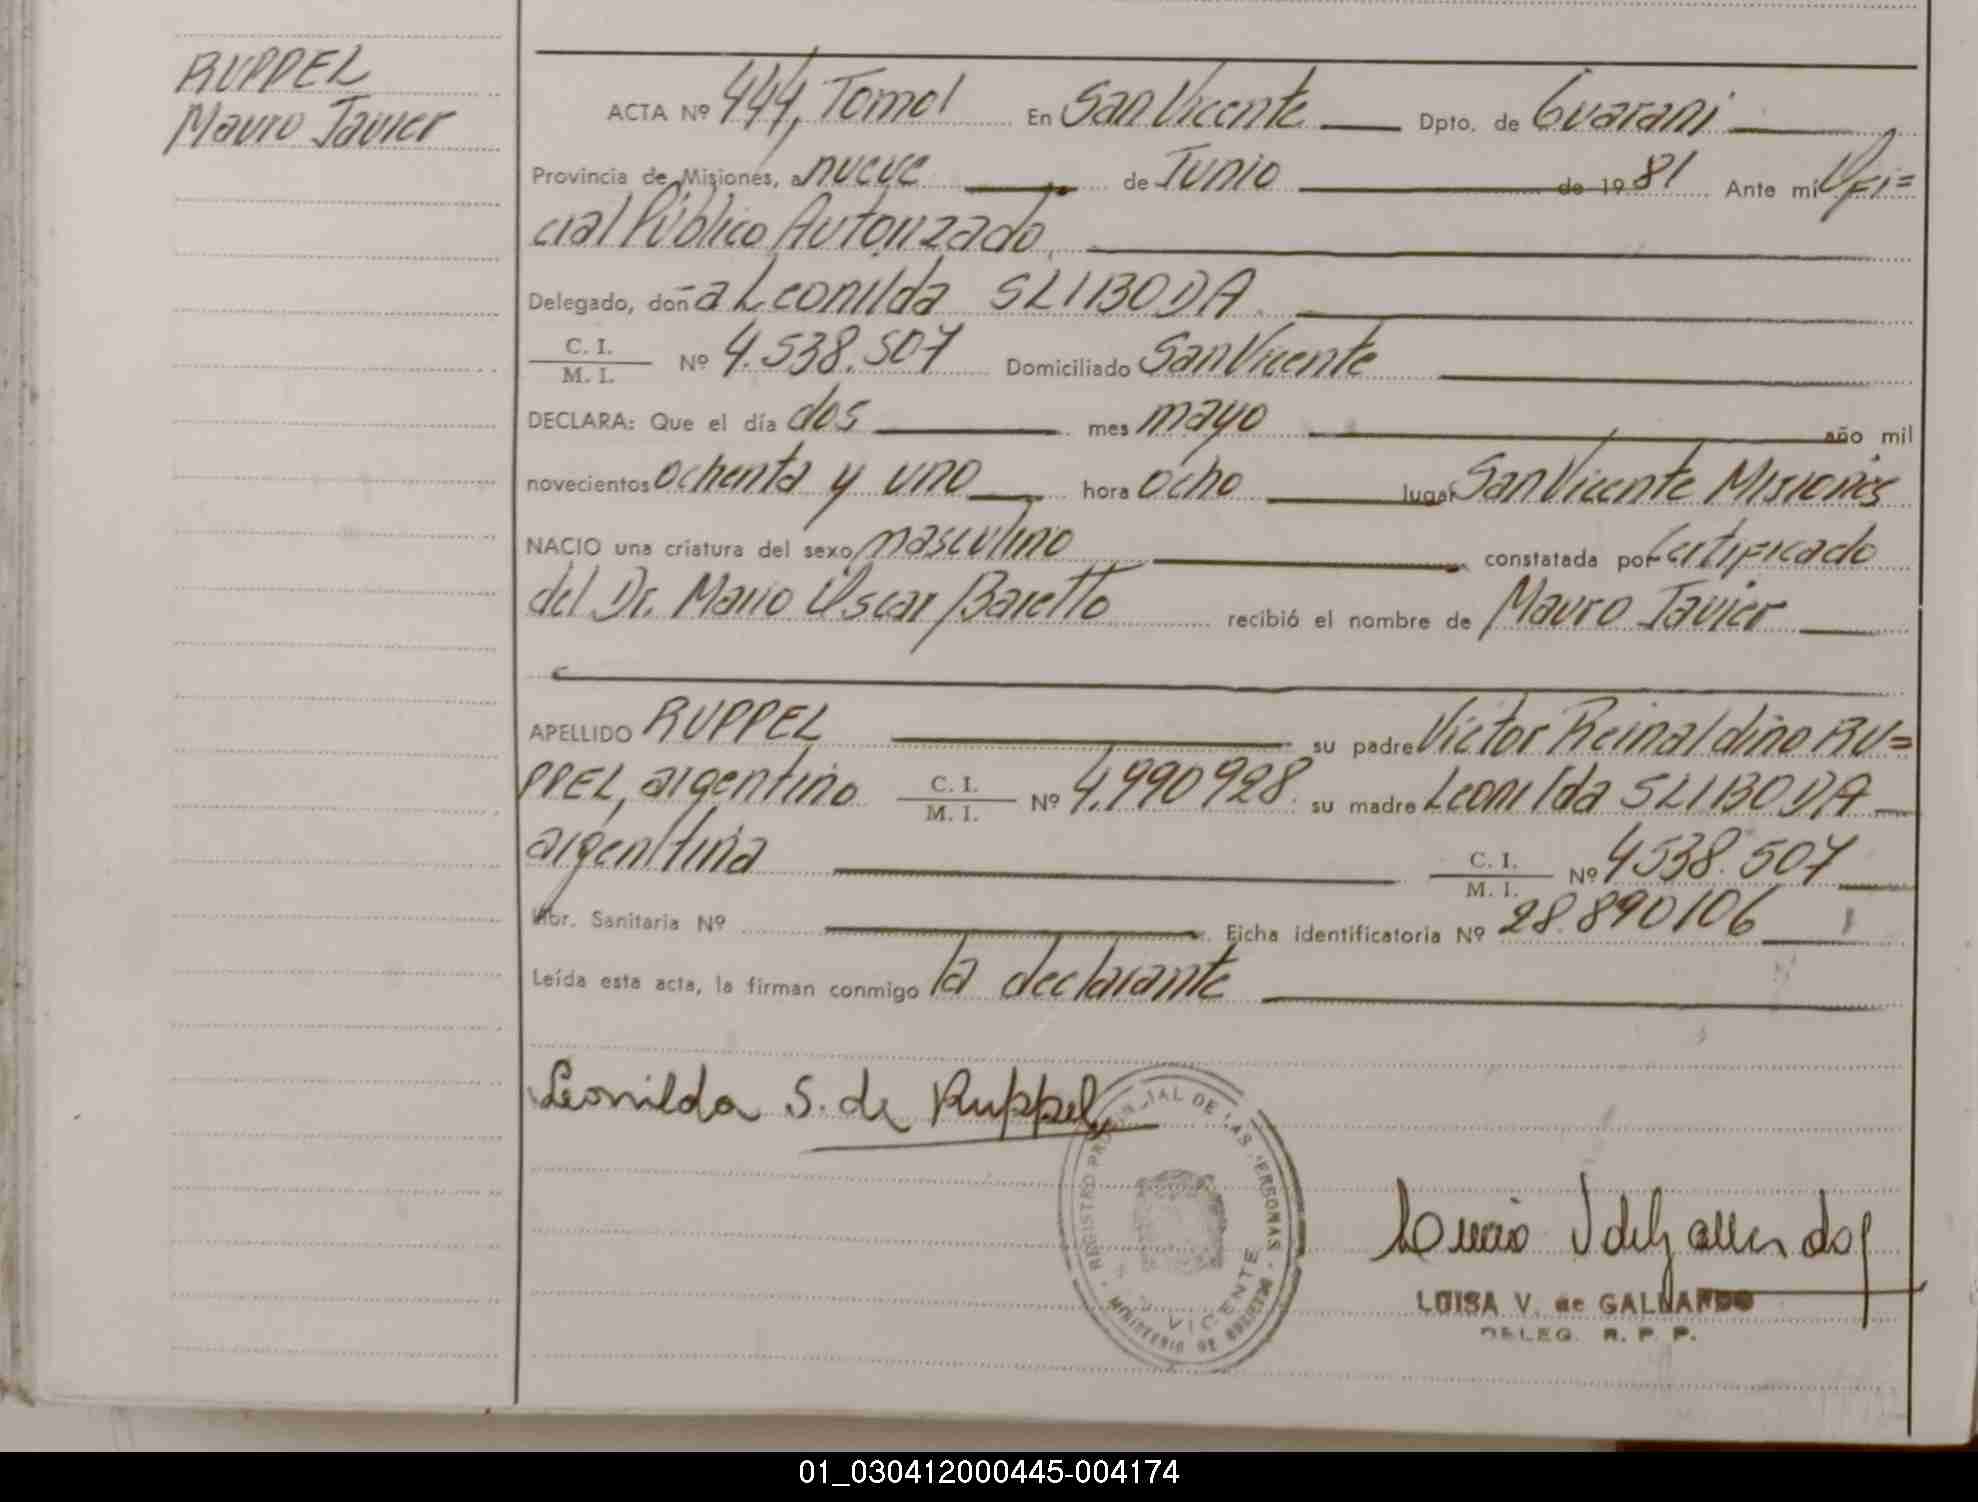 RUPPEL
Mauro Javier
ACTA Nº 444, Tomo I En San Vicente Dpto. de Guarani
Provincia de Misiones, a nueve de Junio de 1981 Ante mi Ofi=
cial Público Autorizado
Delegado, doña Leonilda SLIBODA
C. I.
M. I. Nº 4.538.507 Domiciliado San Vicente
DECLARA: Que el día dos mes mayo año mil
novecientos ochenta y uno hora ocho lugar San Vicente Misiones
NACIO una criatura del sexo masculino constatada por Certificado
del Dr. Mario Oscar Baretto recibió el nombre de Mauro Javier
APELLIDO RUPPEL su padre Victor Reinaldino RU=
PPEL, argentino C. I. M. I. Nº 4.990928 su madre Leonilda SLIBODA
argentina C. I. M. I. Nº 4538.507
Libr. Sanitaria Nº Ficha identificatoria Nº 28.890106
Leída esta acta, la firman conmigo la declarante
Leonilda S. de Ruppel
REGISTRO PROVINCIAL DE LAS PERSONAS
VICENTE
MINISTERIO DE GOBIERNO
LUISA V. de GALLARDO
DELEG. R. P. P.
01_030412000445-004174